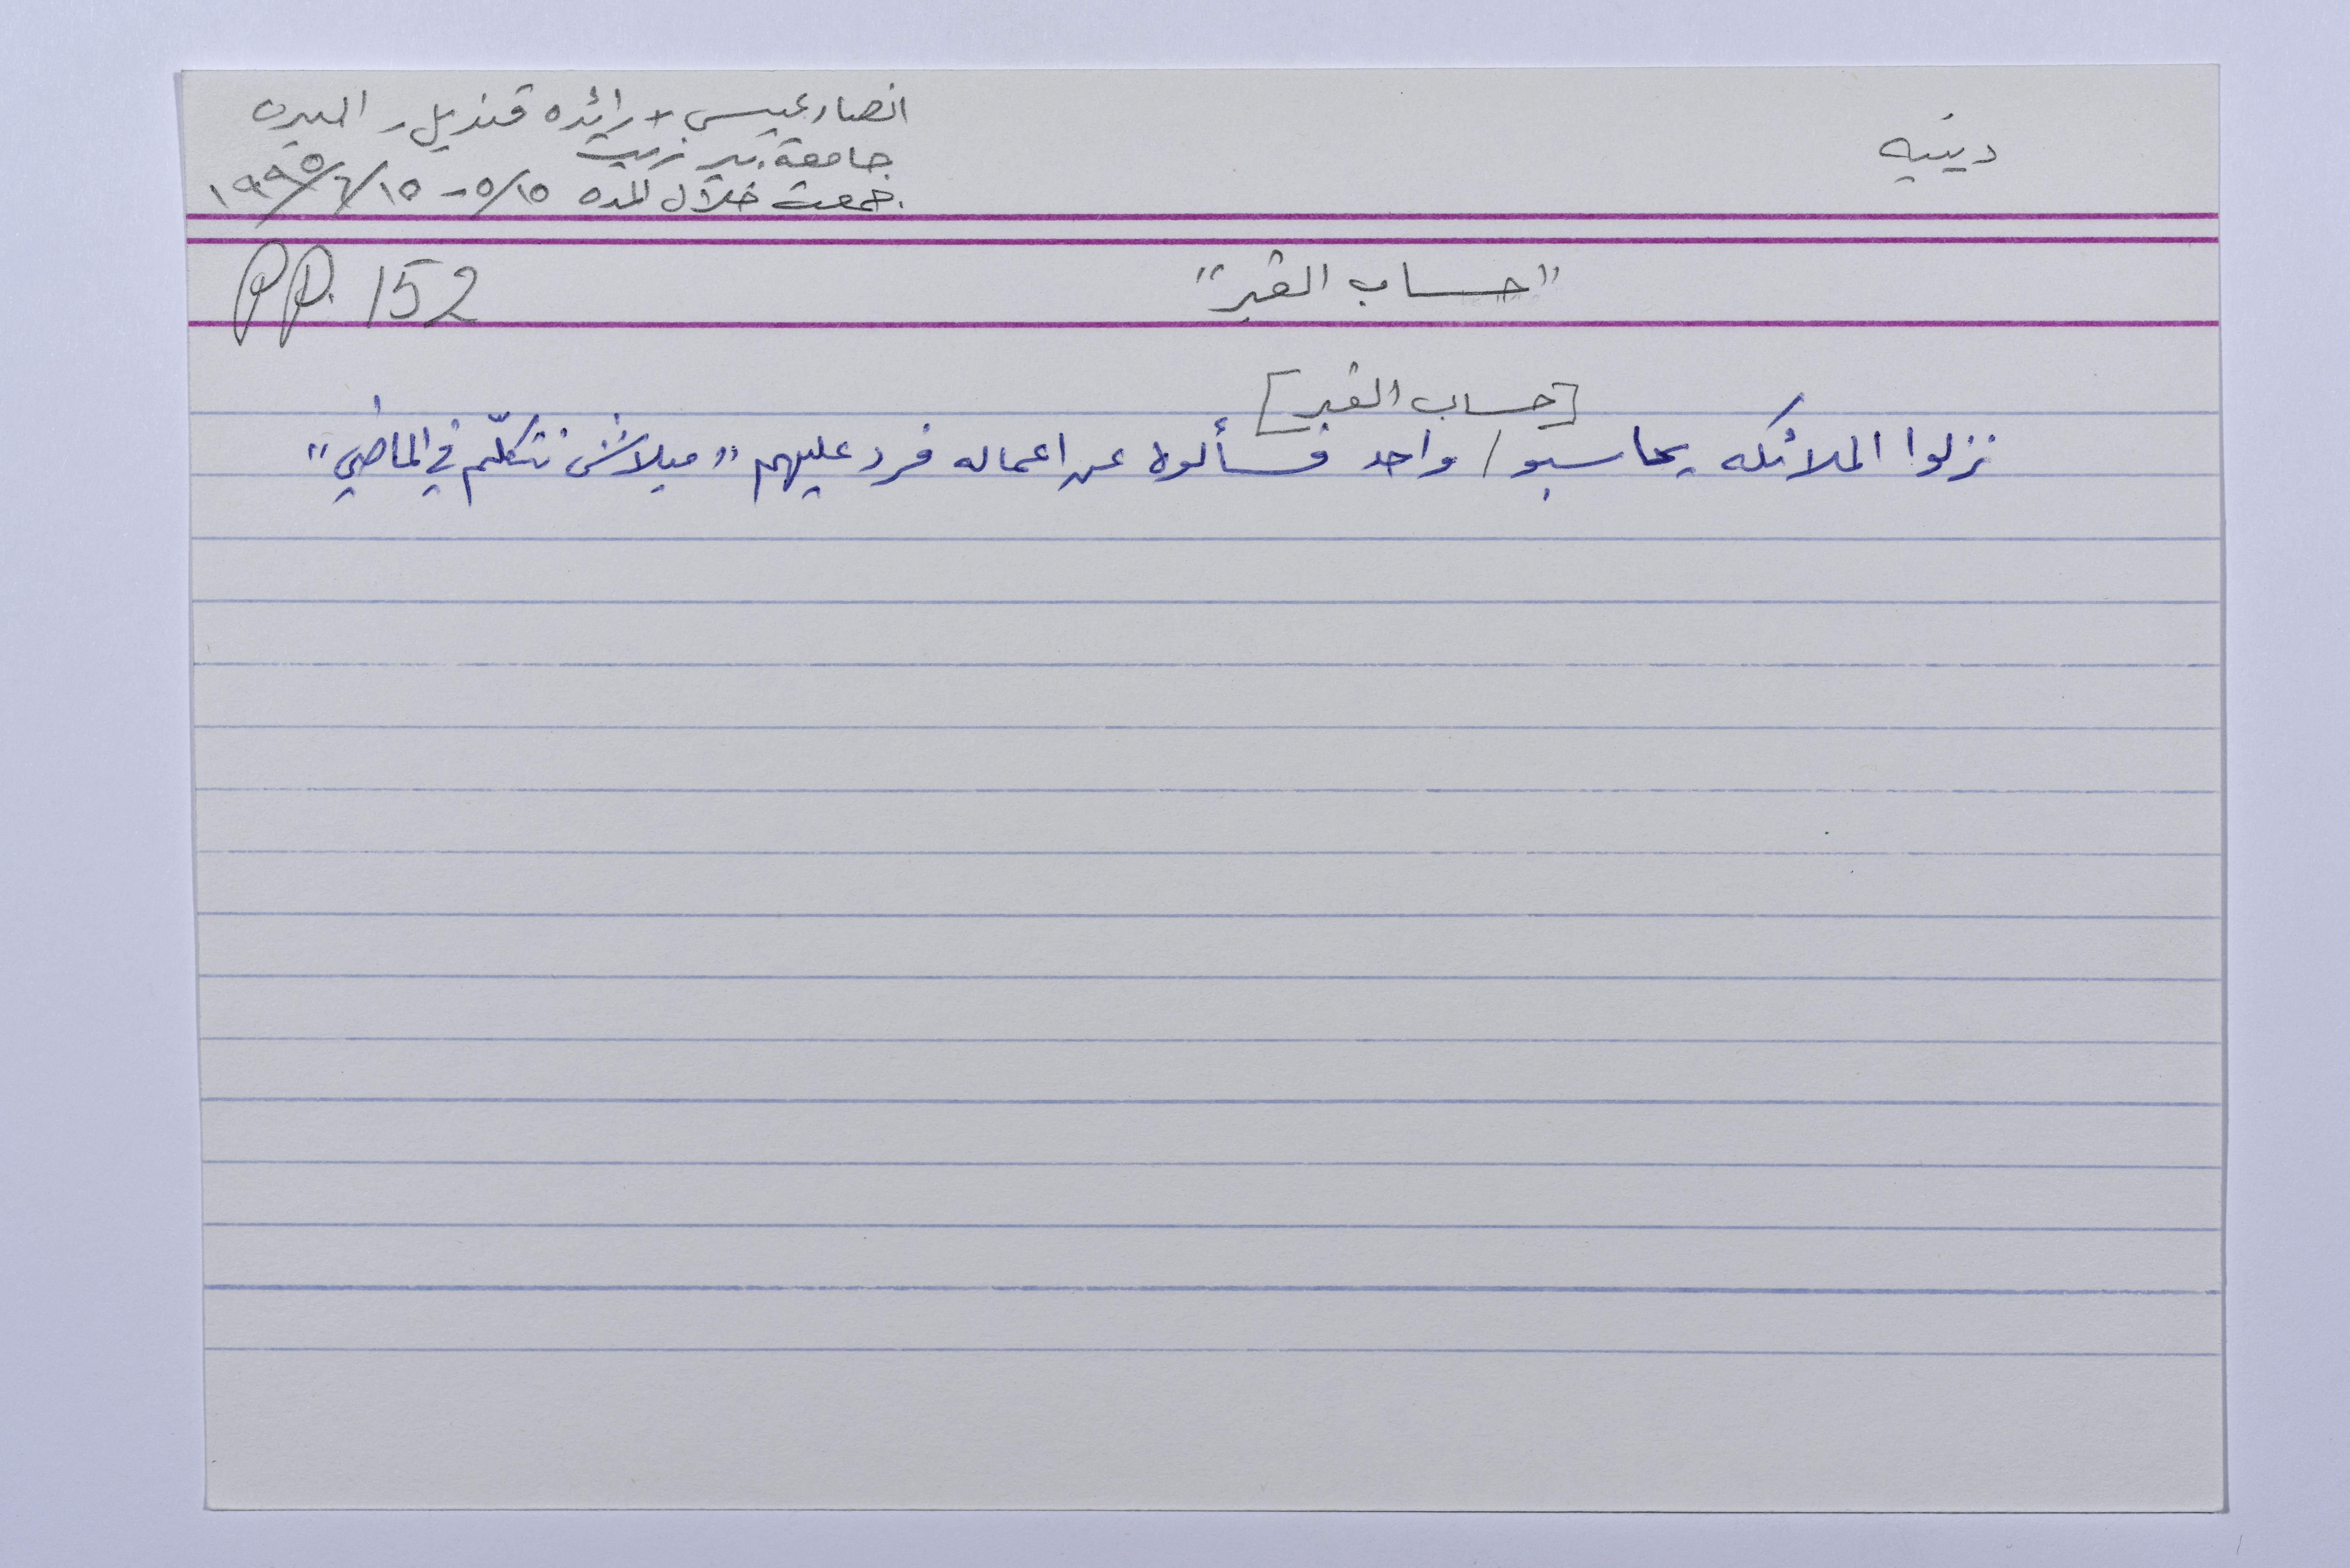 دينيه
انصار عيسى + رائده قنديل - البيره
جامعة بير زيت
جمعت خلال المده ١٥/٥ - ١٥/٦/١٩٩٥
"حساب القبر"
PP. 152
[حساب القبر]
نزلوا الملائكه يحاسبو / واحد فسألوه عن اعماله فرد عليهم "مبلاش نتكلّم في الماضي"